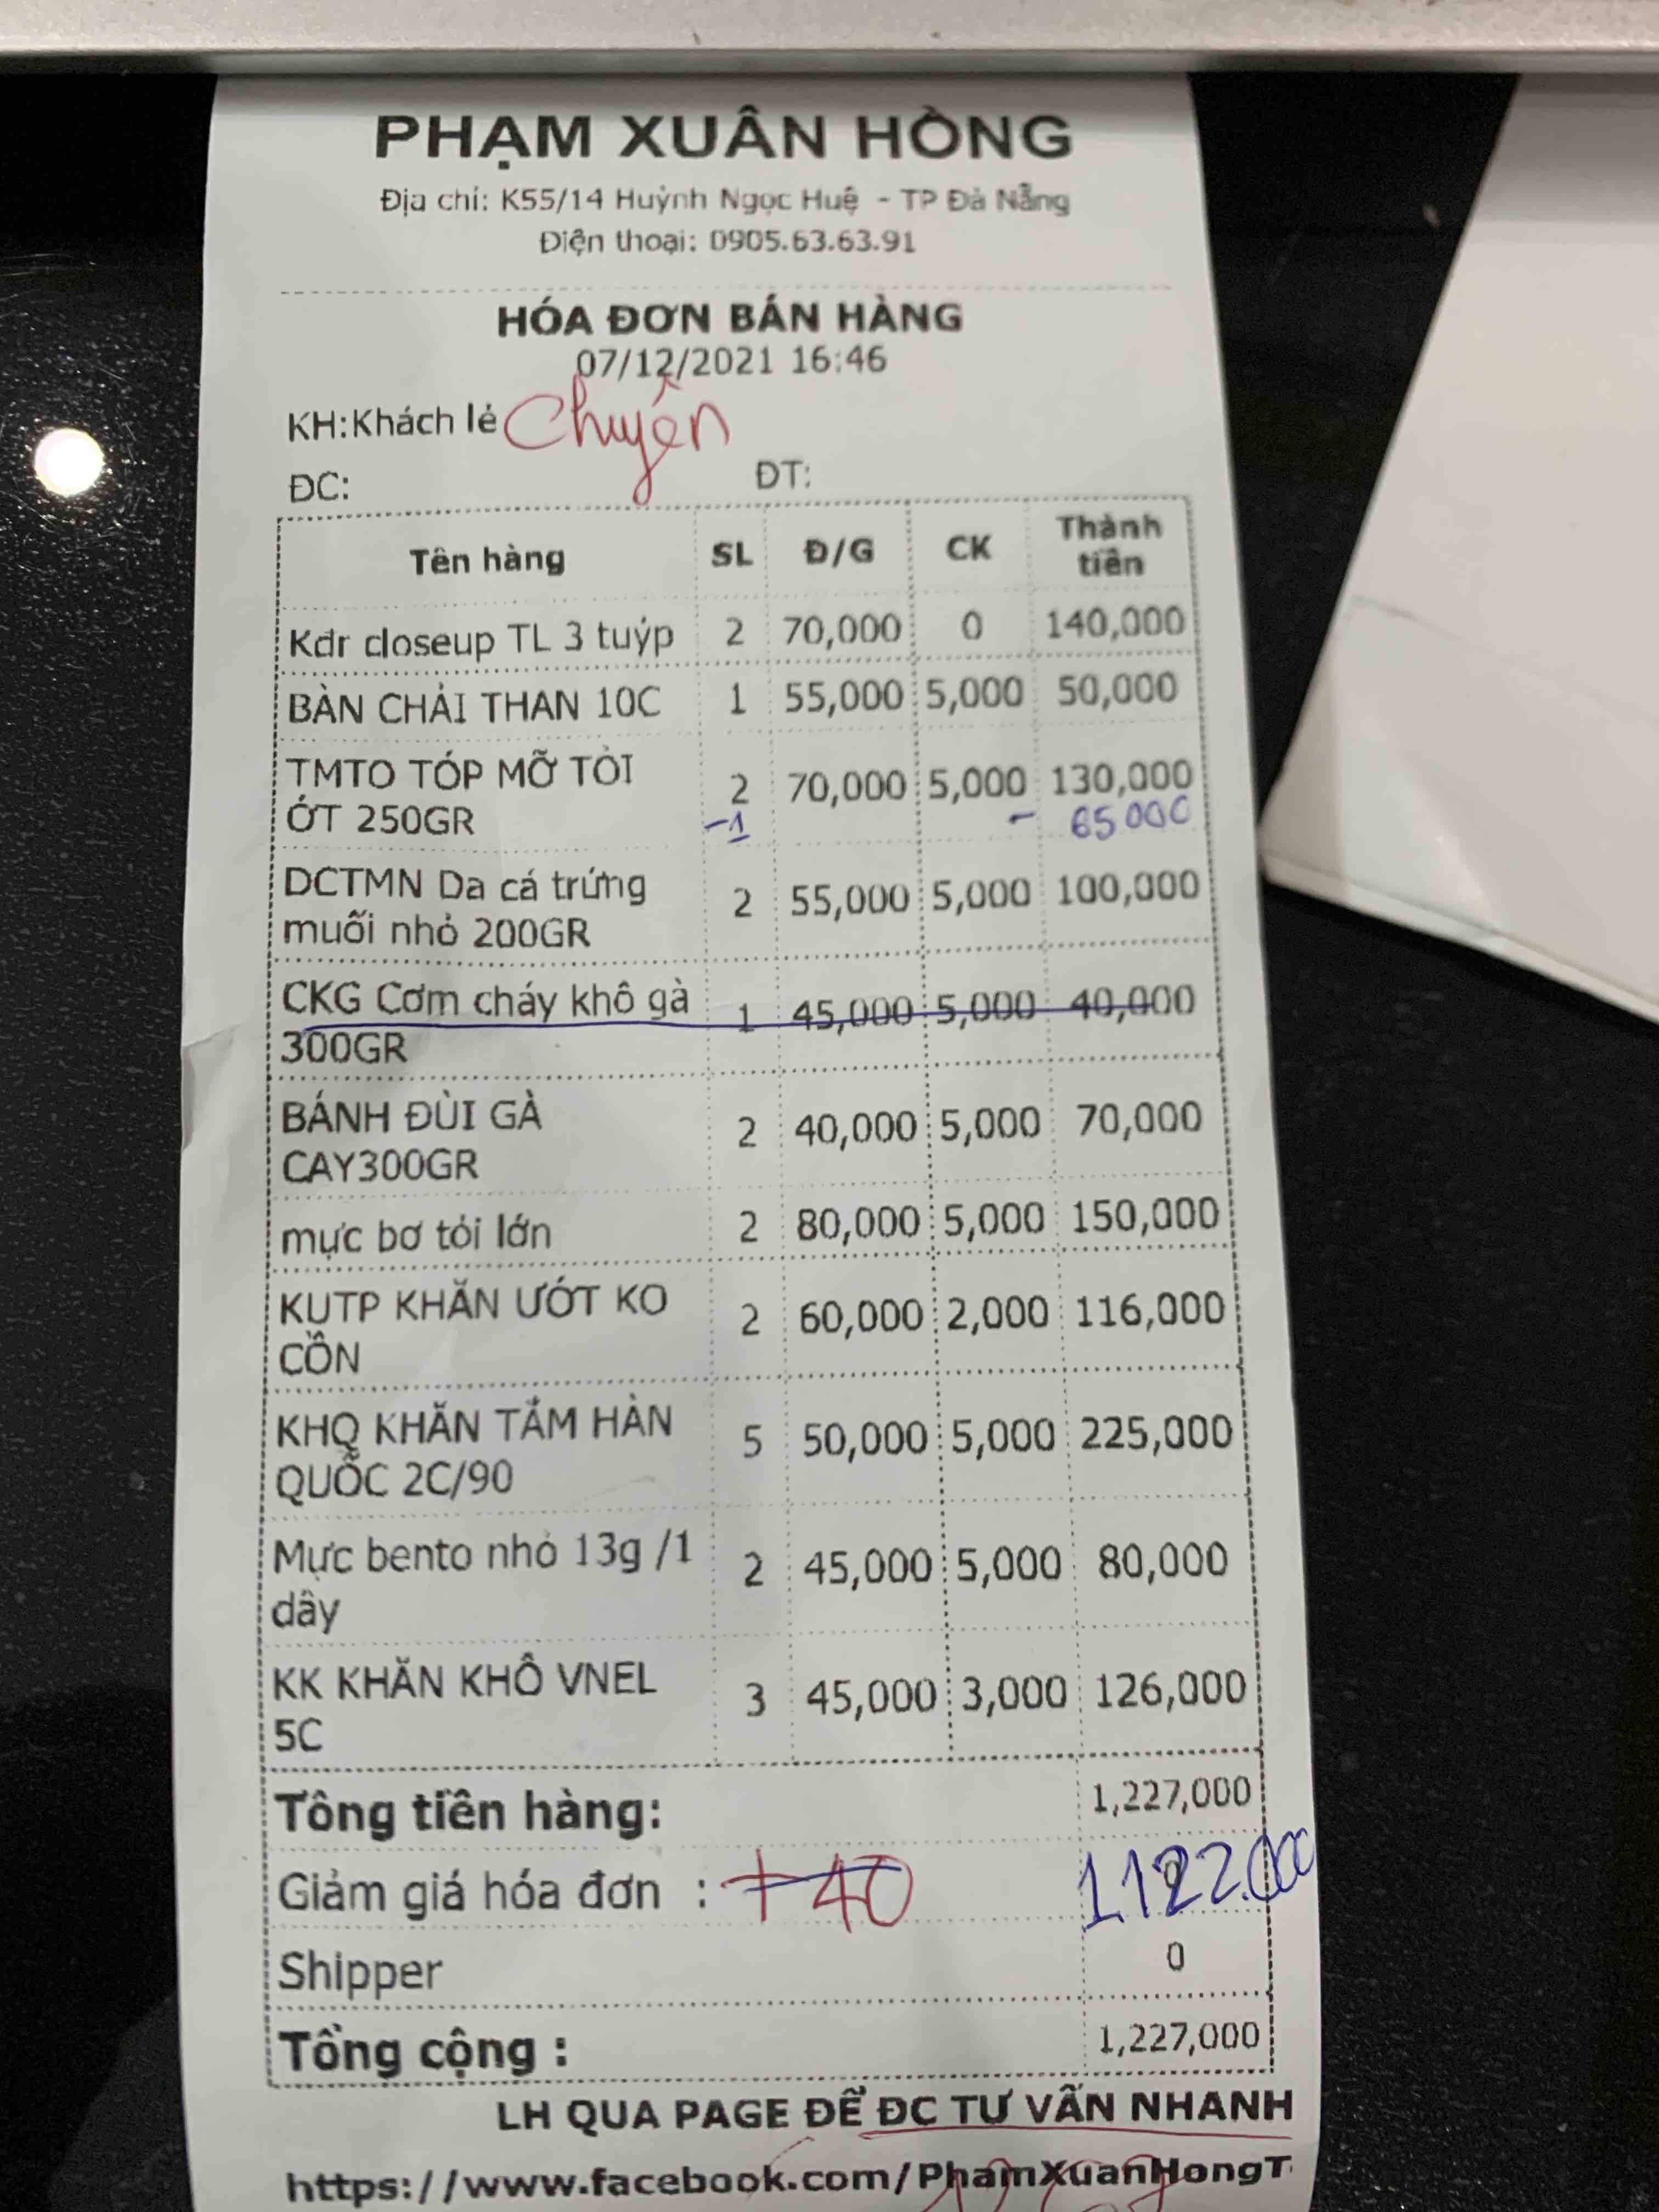 PHẠM XUÂN HỒNG
Địa chỉ: K55/14 Huỳnh Ngọc Huệ - TP Đà Nẵng
Điện thoại: 0905.63.63.91
HÓA ĐƠN BÁN HÀNG
07/12/2021 16:46
KH:Khách lẻ Chuyên
ĐC: ĐT:
Tên hàng SL Đ/G CK Thành tiền
Kđr closeup TL 3 tuýp 2 70,000 0 140,000
BÀN CHẢI THAN 10C 1 55,000 5,000 50,000
TMTO TÓP MỠ TỎI 2 70,000 5,000 130,000
ỚT 250GR -1 - 65000
DCTMN Da cá trứng 2 55,000 5,000 100,000
muối nhỏ 200GR
CKG Cơm cháy khô gà 1 45,000 5,000 40,000
300GR
BÁNH ĐÙI GÀ 2 40,000 5,000 70,000
CAY300GR
mực bơ tỏi lớn 2 80,000 5,000 150,000
KUTP KHĂN ƯỚT KO 2 60,000 2,000 116,000
CỒN
KHQ KHĂN TẮM HÀN 5 50,000 5,000 225,000
QUỐC 2C/90
Mực bento nhỏ 13g /1 2 45,000 5,000 80,000
dây
KK KHĂN KHÔ VNEL 3 45,000 3,000 126,000
5C
Tổng tiền hàng: 1,227,000
Giảm giá hóa đơn : +40 1122.000
Shipper 0
Tổng cộng : 1,227,000
LH QUA PAGE ĐỂ ĐC TƯ VẤN NHANH
https://www.facebook.com/PhamXuanHongT